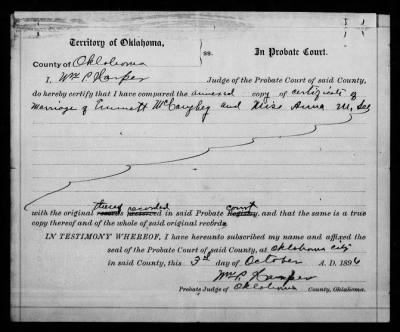 Territory of Oklahoma,
ss. In Probate Court.
County of Oklahoma
I, Wm P. Harper Judge of the Probate Court of said County,
do hereby certify that I have compared the annexed copy of certificate of
Marriage of Emmett McCaughey and Miss Anna M.
thereof recorded court
with the original records in said Probate Registry, and that the same is a true
copy thereof and of the whole of said original records
IN TESTIMONY WHEREOF, I have hereunto subscribed my name and affixed the
seal of the Probate Court of said County, at Oklahoma City
in said County, this 3rd day of October A. D. 1896
Wm P. Harper
Probate Judge of Oklahoma County, Oklahoma.